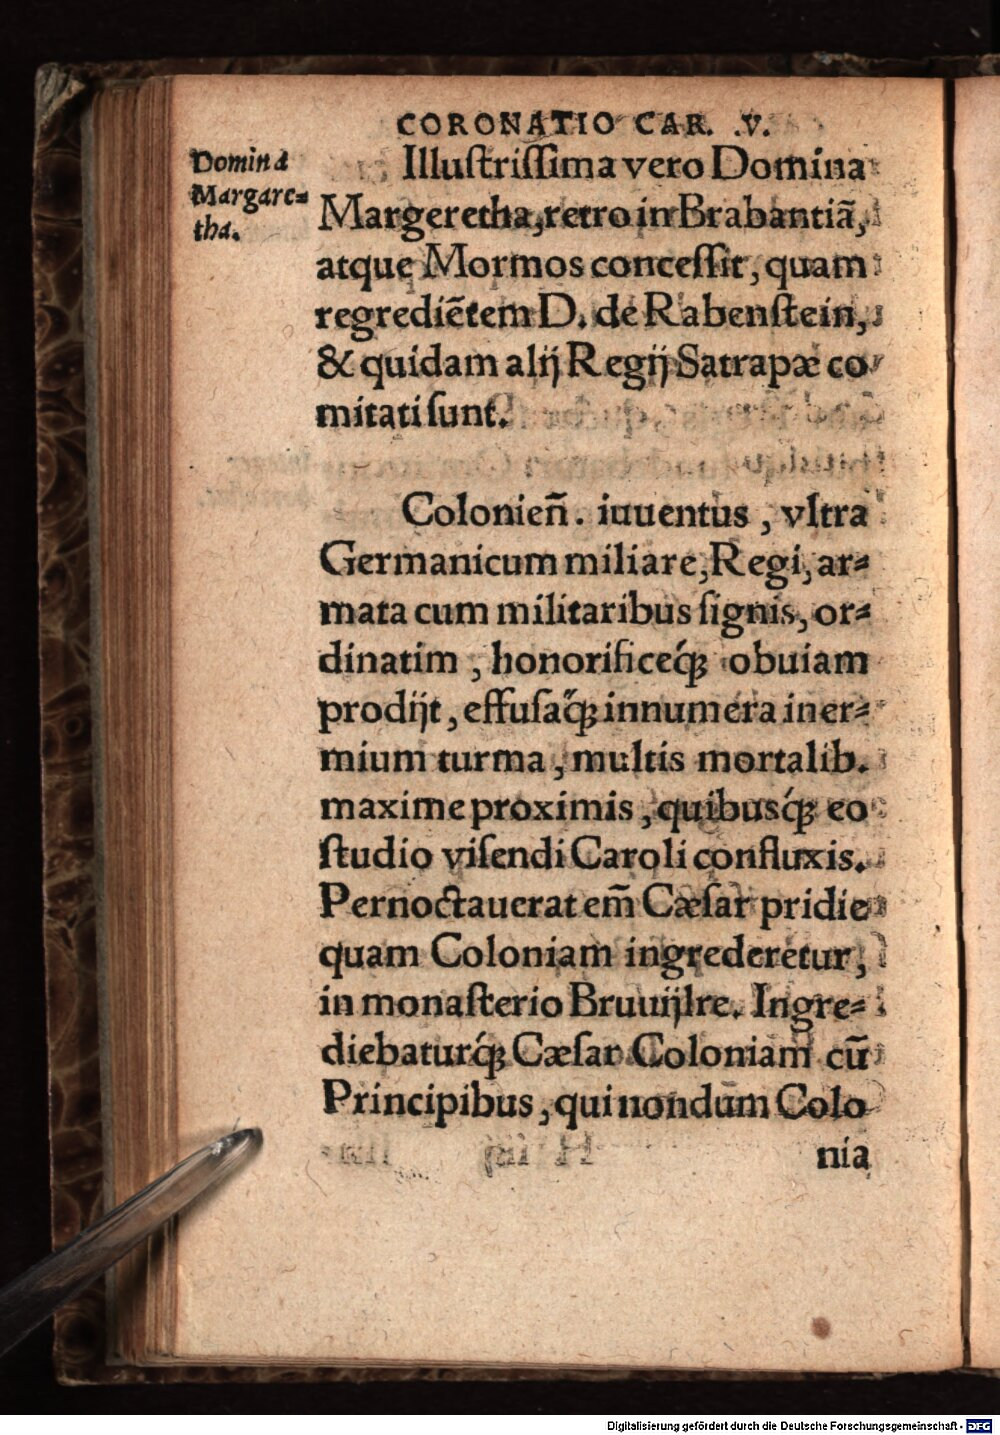 CORONATIO CAR. .V.
Domina
Margare⸗
tha.
Illuſtriſſima vero Domina
Margeretha, retro in Brabantiã,
atque Mormos conceſſit, quam
regrediẽtem D. de Rabenſtein,
& quidam alij Regij Satrapæ co
mitati ſunt.
Colonien̄. iuuentus, vltra
Germanicum miliare, Regi, ar⸗
mata cum militaribus ſignis, or⸗
dinatim, honorificeq́ꝫ obuiam
prodijt, effuſaq́ꝫ innumera iner⸗
mium turma, multis mortalib.
maxime proximis, quibusq́ꝫ eo
ſtudio viſendi Caroli confluxis.
Pernoctauerat em̄ Cæſar pridie
quam Coloniam ingrederetur,
in monaſterio Bruuijlre. Ingre⸗
diebaturq́ꝫ Cæſar Coloniam cū
Principibus, qui nondum Colo
nia
Digitalisierung gefördert durch die Deutsche Forschungsgemeinschaft - DFG